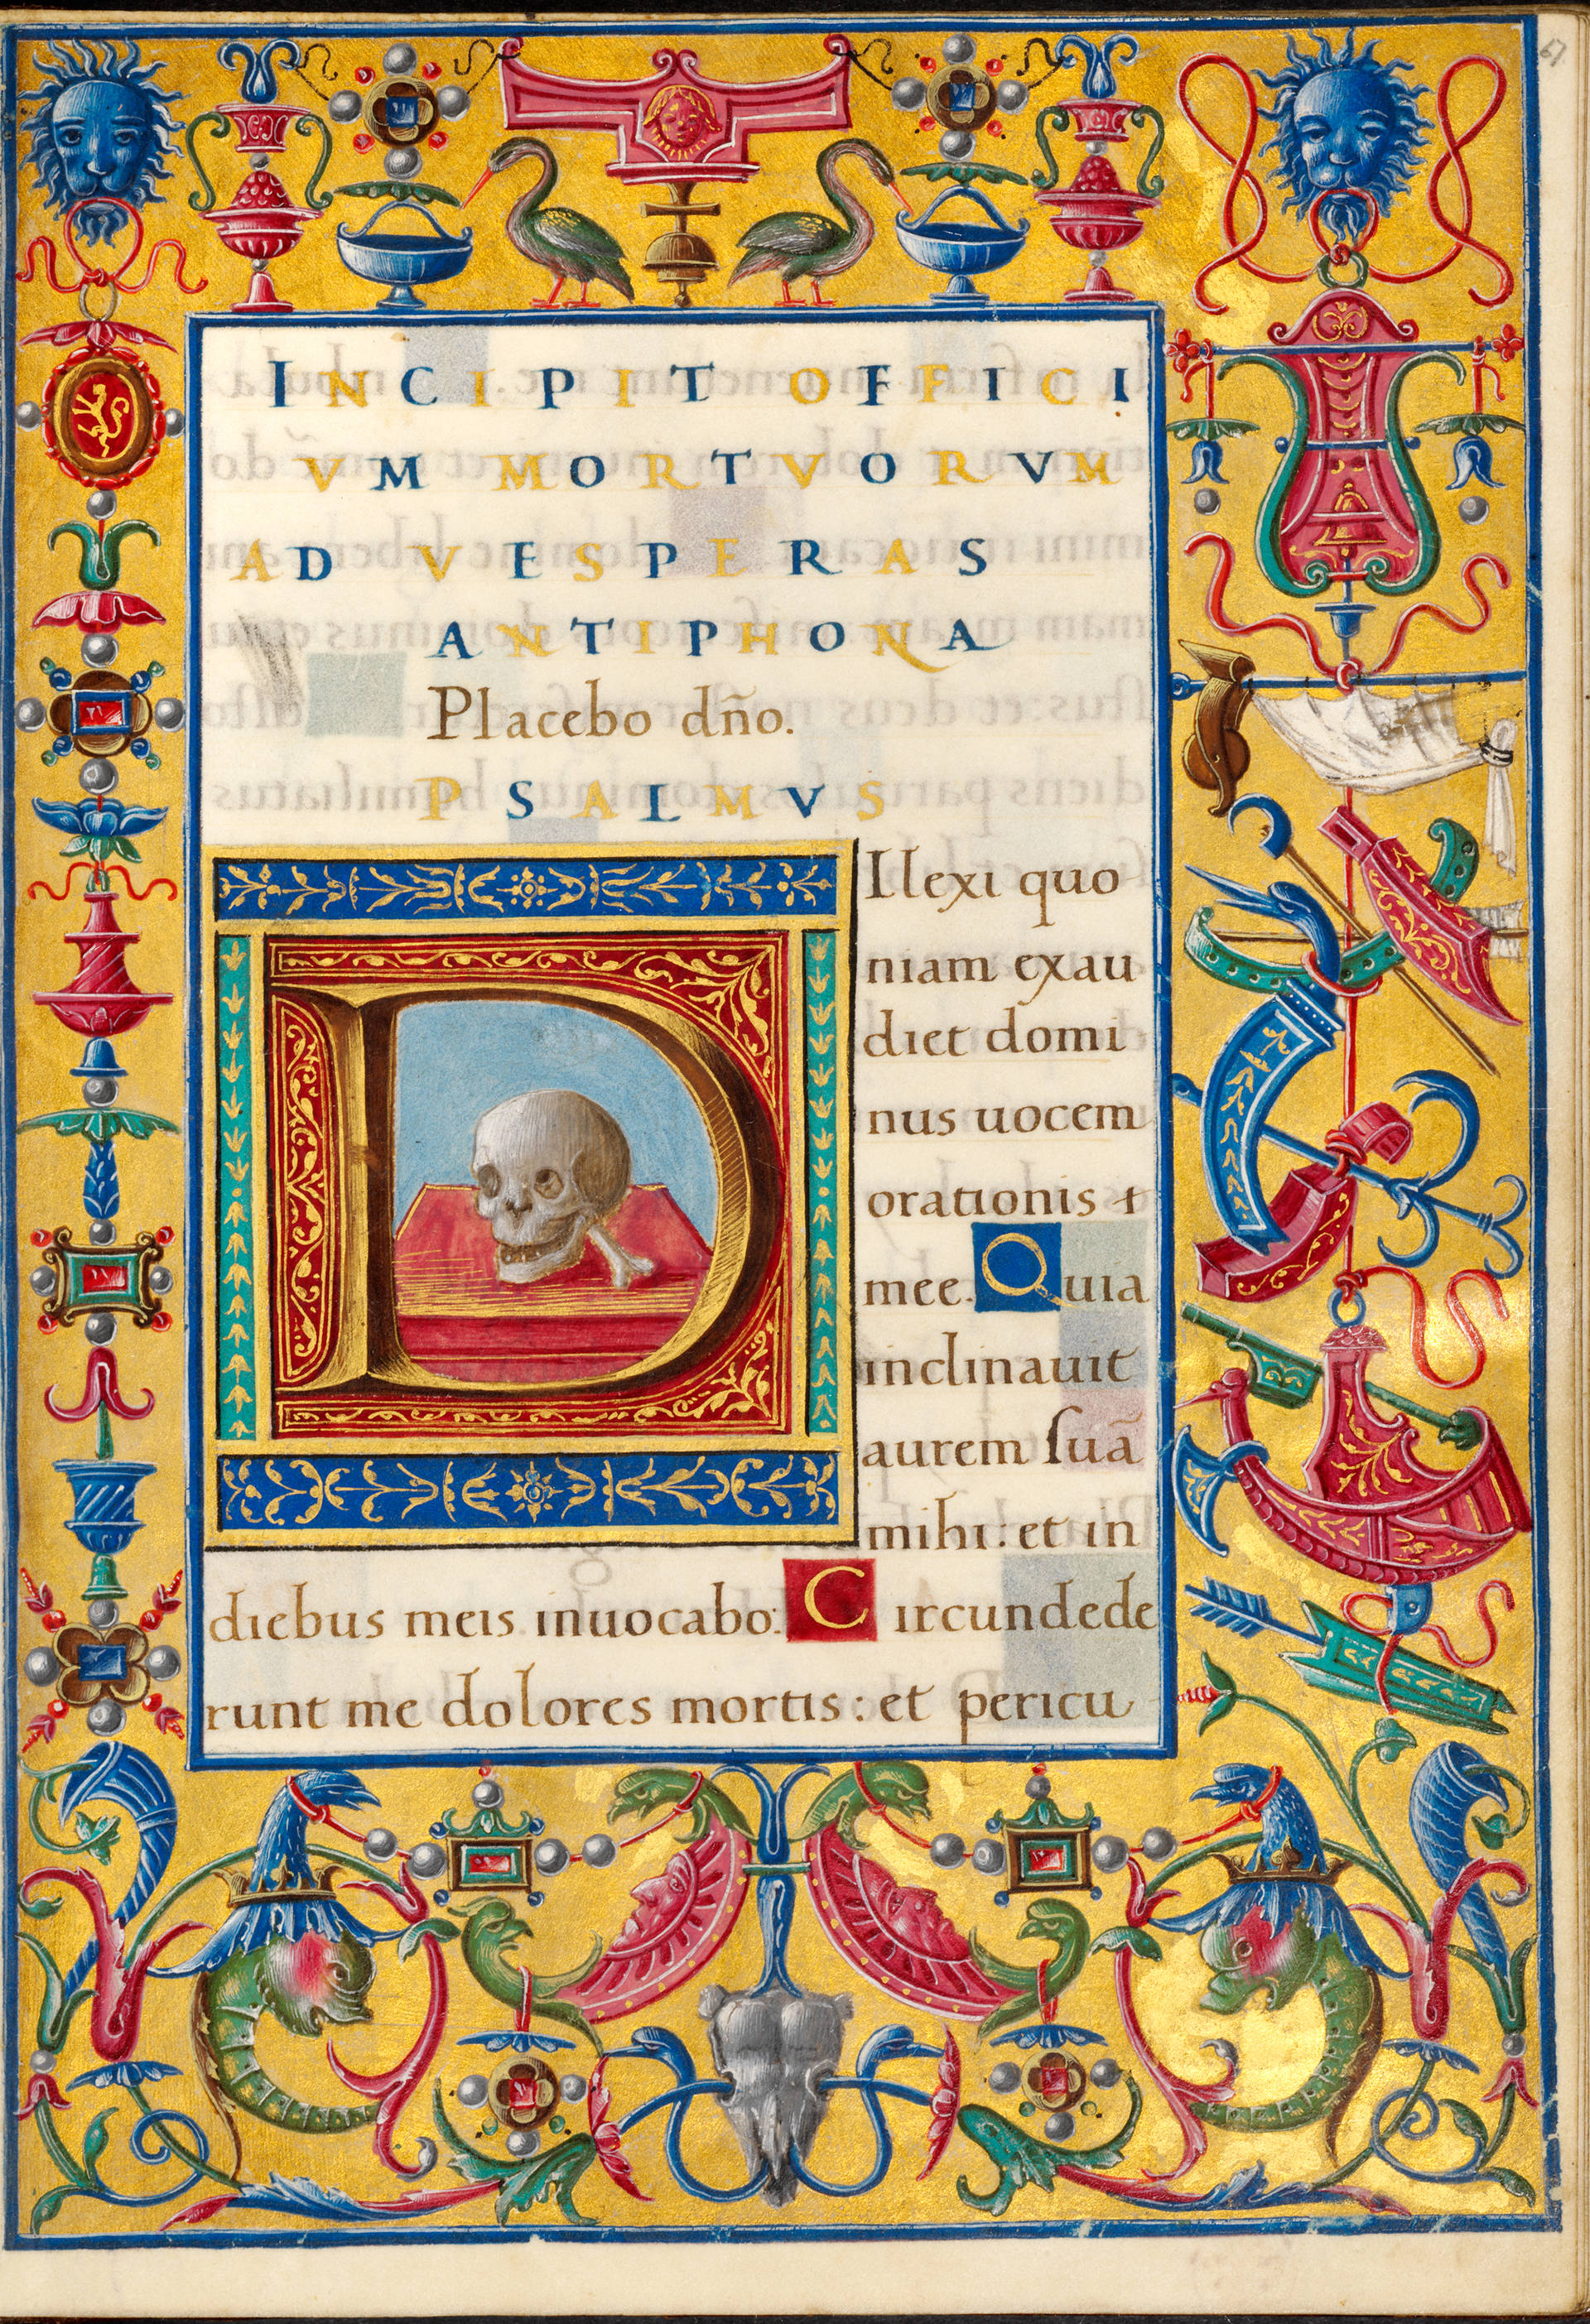 INCIPIT OFFICI
VM MORTVORVM
AD VESPERAS
ANTIPHONA
Placebo dn̄o.
PSALMVS
DIlexi quo
niam exau
diet domi
nus uocem
orationis
mee. Quia
inclinauit
aurem ſuā
mihi: et in
diebus meis inuocabo: Circundede
runt me dolores mortis: et pericu